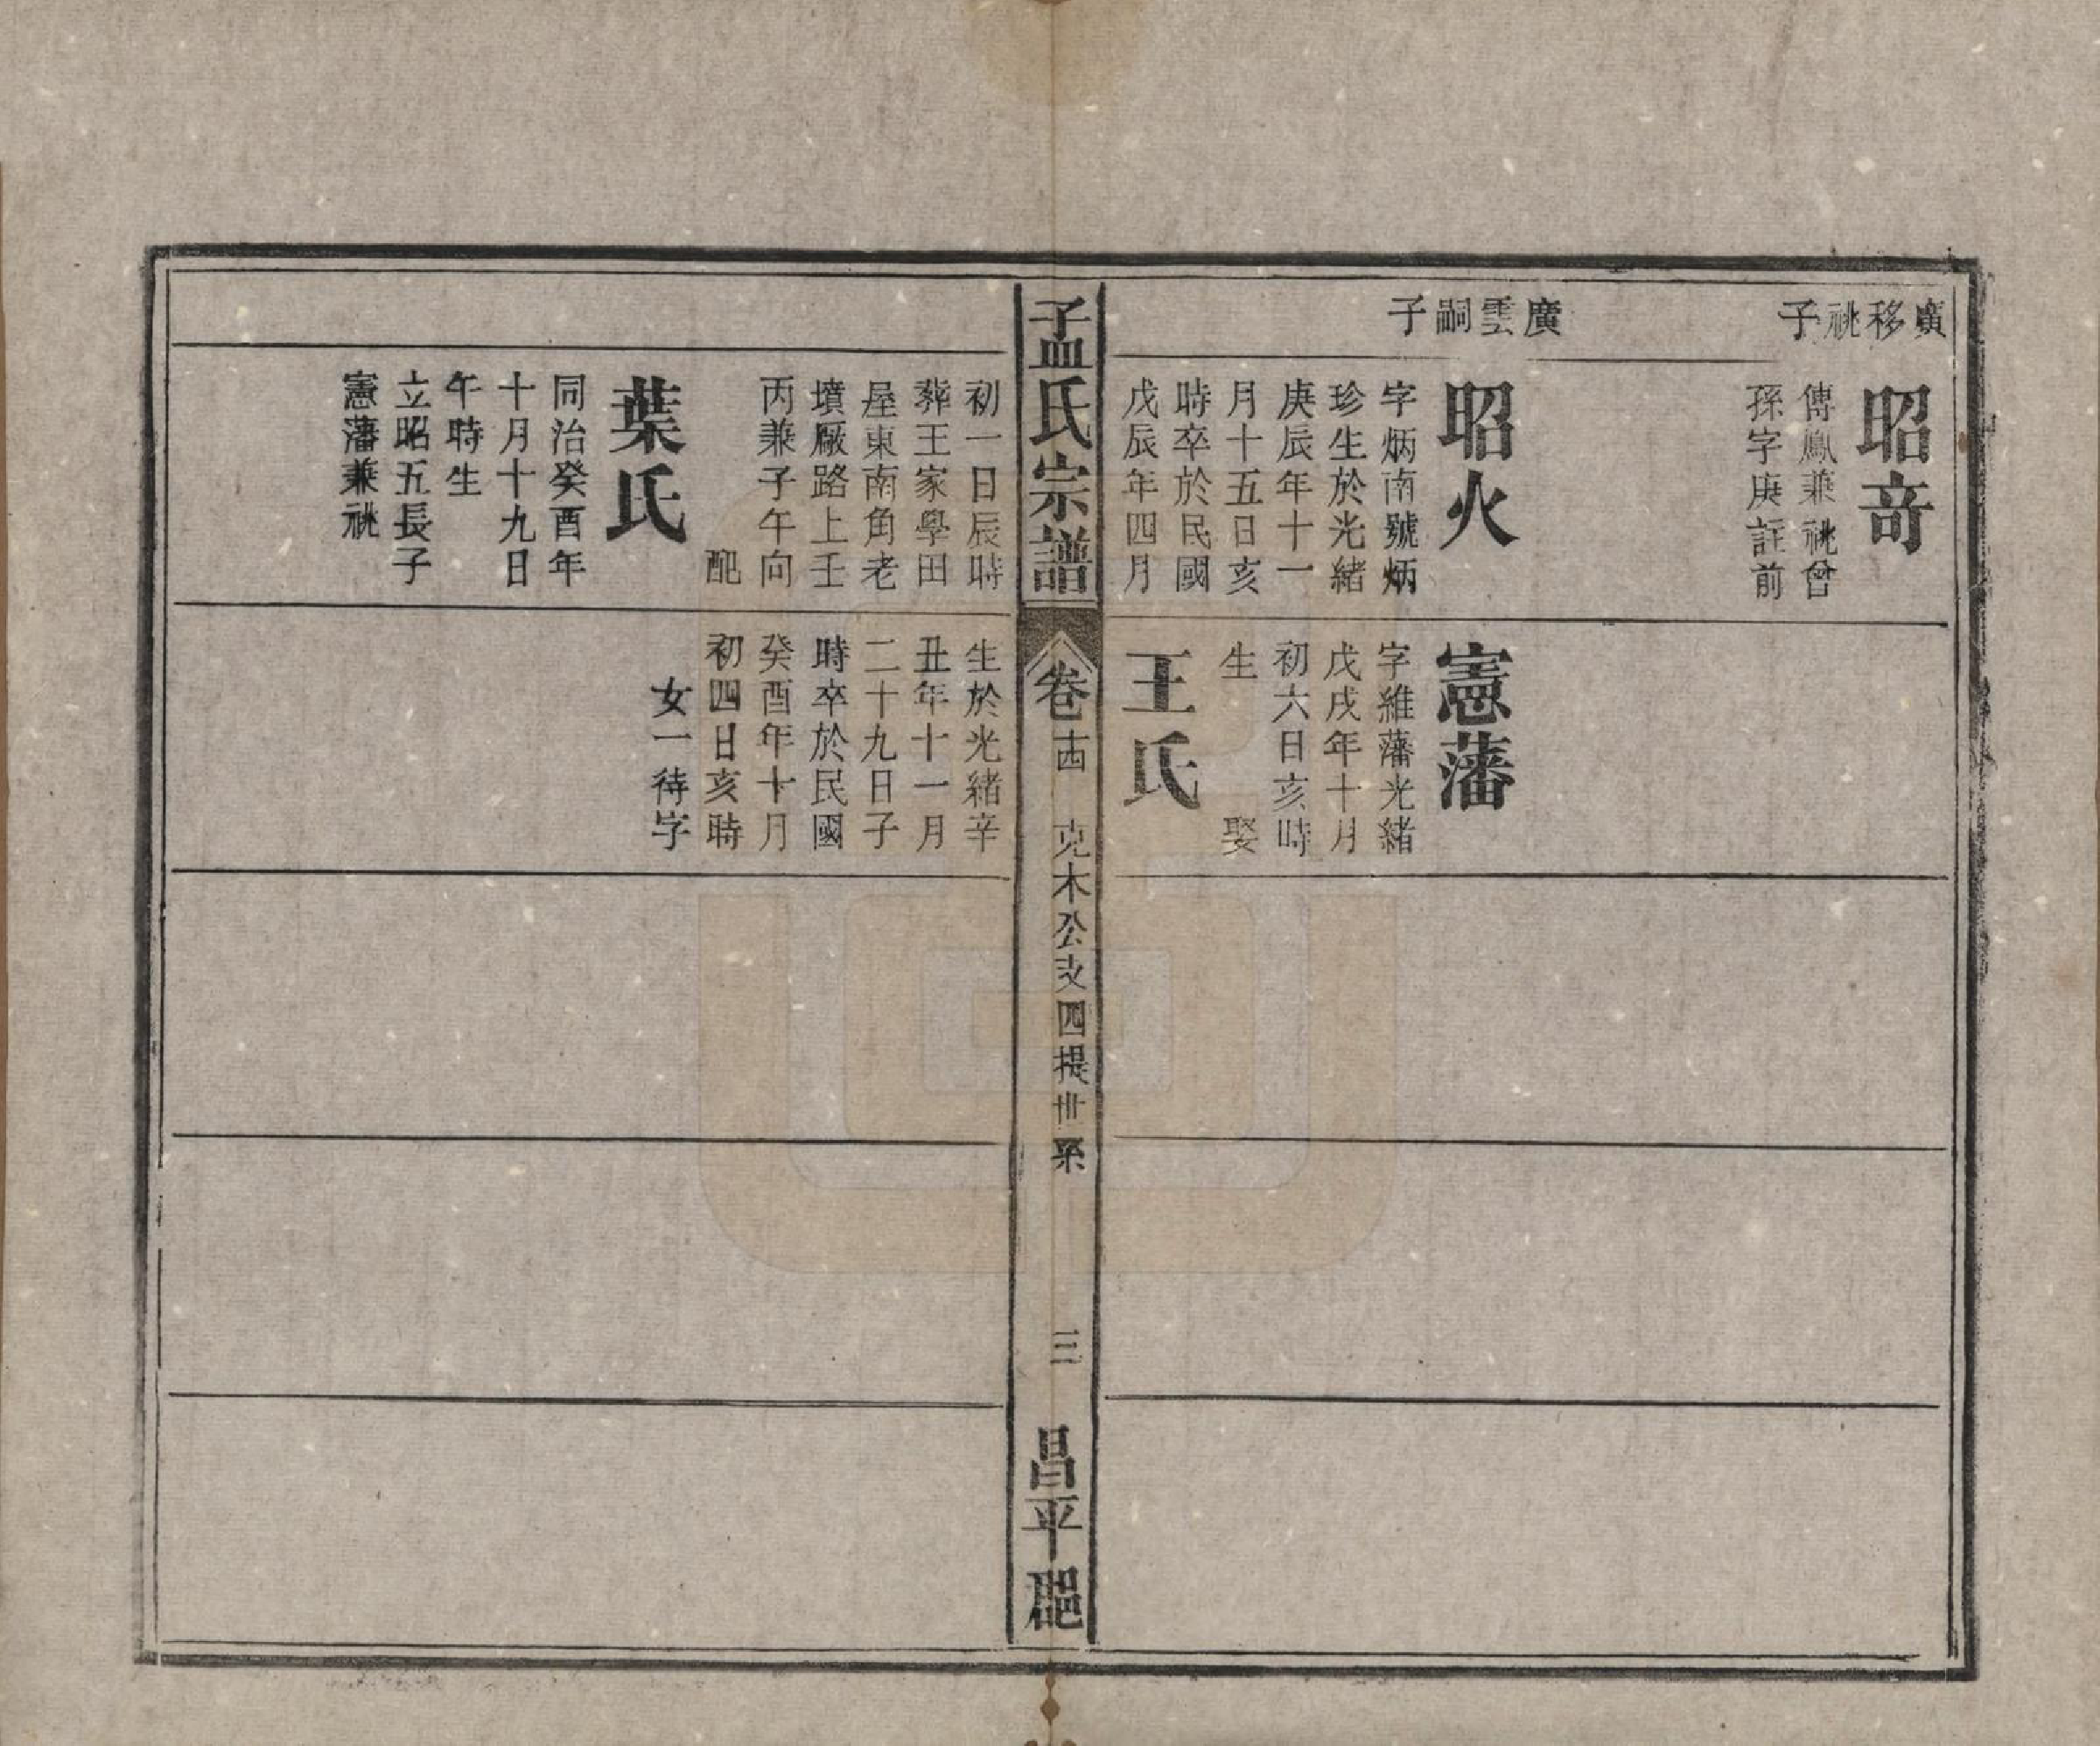 廣移祧子
昭奇
傳鳳兼祧曾
孫字庚註前
廣雲嗣子
昭火
字炳南號炳
珍生於光緒
庚辰年十一
月十五日亥
時卒於民國
戊辰年四月
憲藩
字維藩光緒
戊戌年十月
初六日亥時
生 娶
王氏
孟氏宗譜
卷十四 克木公支四提世系 三
昌平郡
初一日辰時
葬王家學田
屋東南角老
墳厰路上壬
丙兼子午向
配
葉氏
同治癸酉年
十月十九日
午時生
立昭五長子
憲藩兼祧
生於光緒辛
丑年十一月
二十九日子
時卒於民國
癸酉年十月
初四日亥時
女一待字